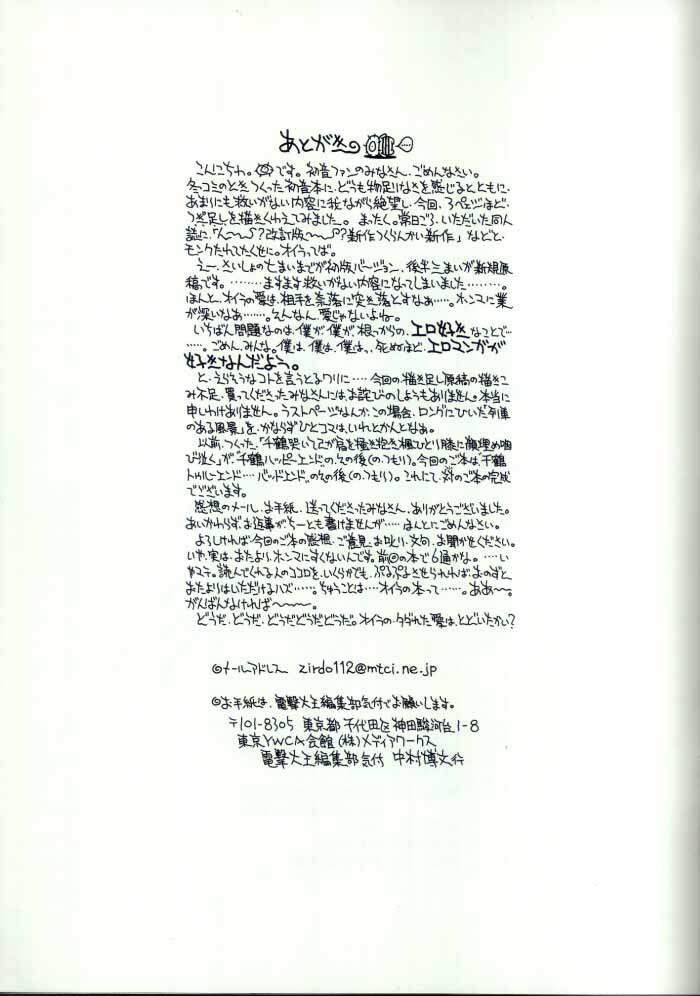 あとがき
こんにちわ。です。初音ファンのみなさん、ごめんなさい。
冬コミのときつくった初音本に、どうも物足りなさを感じるとともに、
あまりにも救いがない内容に我ながら絶望し、今回、3ページほど、
つぎ足しを描きくわえてみました。まったく。常日ごろ、いただいた同人
誌に、「え〜〜っ？改訂版〜〜っ？？新作つくらんかい新作」などと、
モンクたれてたくせに。オイラってば。
えー、さいしょの七まいまでが初版バージョン、後半三まいが新規原
稿です。………ますます救いがない内容になってしまいました………。
ほんと、オイラの愛は、相手を奈落に突き落とすなあ……。ホンマに業
が深いなあ………。そんなん、愛じゃないよね。
いちばん問題なのは、僕が、僕が、根っからの、エロ好きなことで…
……。ごめん、みんな。僕は、僕は、僕は、、死ぬほど、エロマンガが
好きなんだよう。
と、えらそうなコトを言うとるワリに……今回の描き足し原稿の描きこ
み不足、買ってくださったみなさんには、お詫びのしようもありません。本当に
申しわけありません。ラストページなんか、この場合、ロングにひいた列車
のある風景を、かならずひとコマは、いれとかんとなあ。
以前、つくった、「千鶴哭いて己が肩を掻き抱き楓ひとり膝に顔埋め咽
び泣く」が、「千鶴ハッピーエンド」の、その後(のつもり)。今回のご本は、「千鶴
トゥルーエンド……バッドエンド」のその後(のつもり)。これにて、対のご本の完成
でございます。
感想のメール、お手紙、送ってくださったみなさん、ありがとうございました。
あいかわらず、お返事がちーとも書けませんが……ほんとにごめんなさい。
よろしければ、今回のご本の感想、ご意見、お叱り、文句、お聞かせください。
いや、実は、おたより、ホンマにすくないんです。前回の本で6通かな。……い
ヤ、マテ。読んでくれる人のココロを、いくらかでも、ぷるぷるさせられれば、おのずと、
おたよりはいただけるハズ……。ちゅうことは……オイラの本って……。ああ〜。
がんばんなければ〜〜〜。
どうだ、どうだ、どうだどうだどうだ。オイラの、タダれた愛は、とどいたかい？
◎メールアドレス zirdo112@mtci.ne.jp
◎お手紙は、電撃大王編集部気付でお願いします。
〒101-8305 東京都千代田区神田駿河台1-8
東京YWCA会館(株)メディアワークス
電撃大王編集部気付 中村博文行